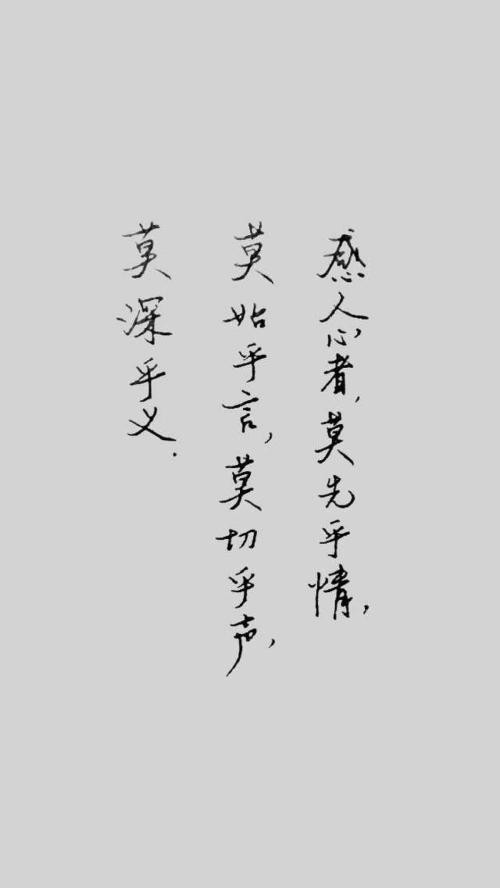 感人心者,莫先乎情,
莫始乎言,莫切乎声,
莫深乎义.